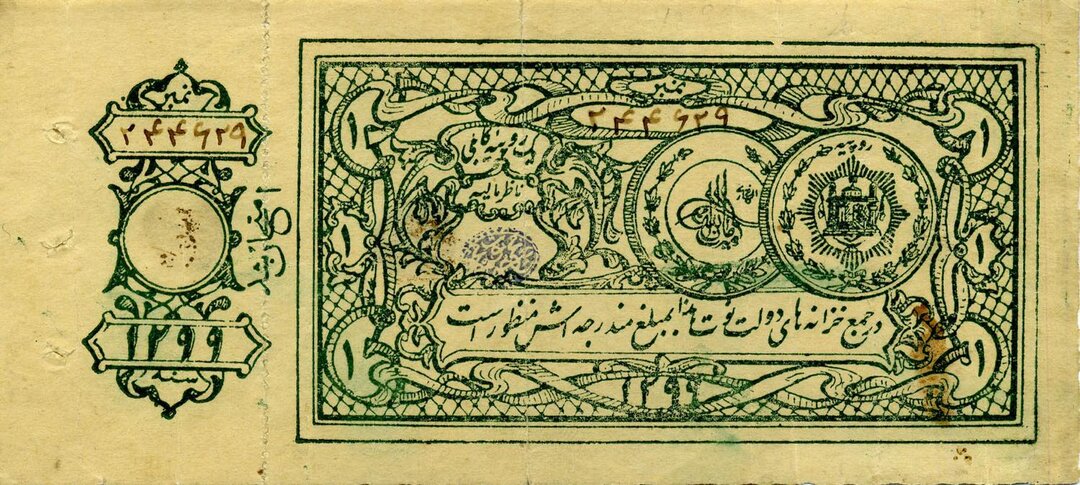 نمبر
۲۴۴۶۲۹
۱۲۹۹
سنه
نمبر
۲۴۴۶۲۹
۱
۱
یک روپیه کابلی
روپیه
ناظر مالیه
۱
۱
در جمیع خزانه های دولت نوت هذا بمبلغ مندرجه اش منظور است
۱
۱
۱۲۹۹